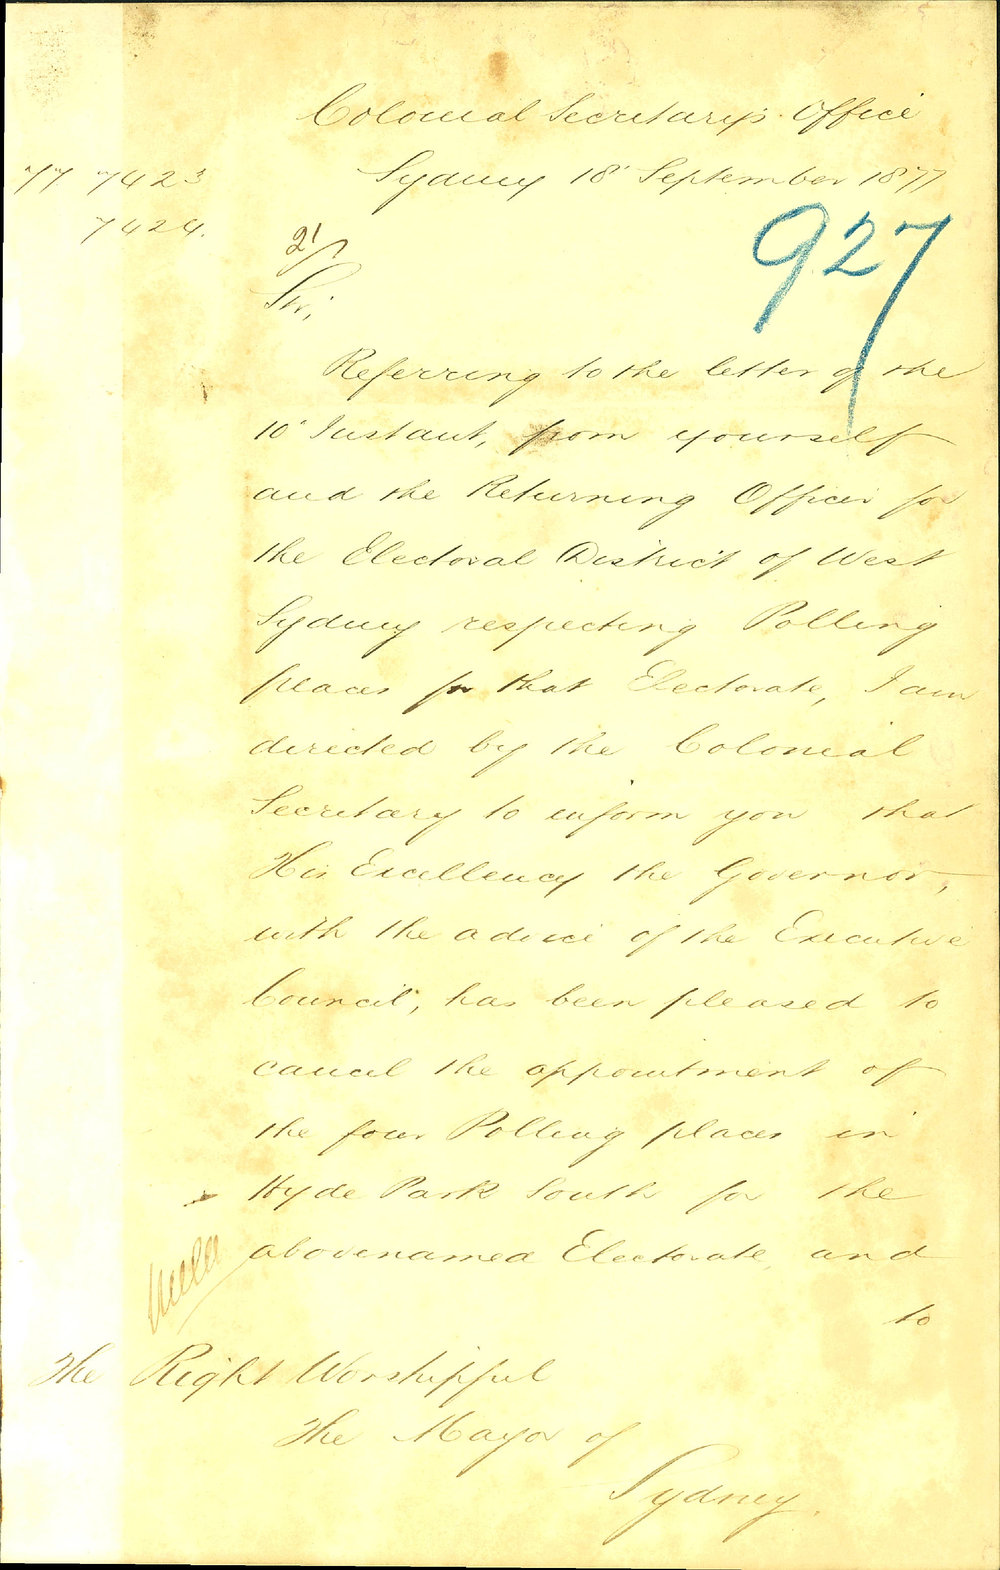 Colonial Secretary's Office
77 7423
Sydney 18 September 1877
7424.
927
Sir,
Referring to the letter of the
10' Instant, from yourself
and the Returning Officer for
the Electoral District of West
Sydney respecting Polling
places for that Electorate, I am
directed by the Colonial
Secretary to inform you that
His Excellency the Governor,
with the advice of the Executive
Council, has been pleased to
cancel the appointment of
the four Polling places in
Hyde Park South for the
abovenamed Electorate, and
to
The Right Worshipful
The Mayor of
Sydney.